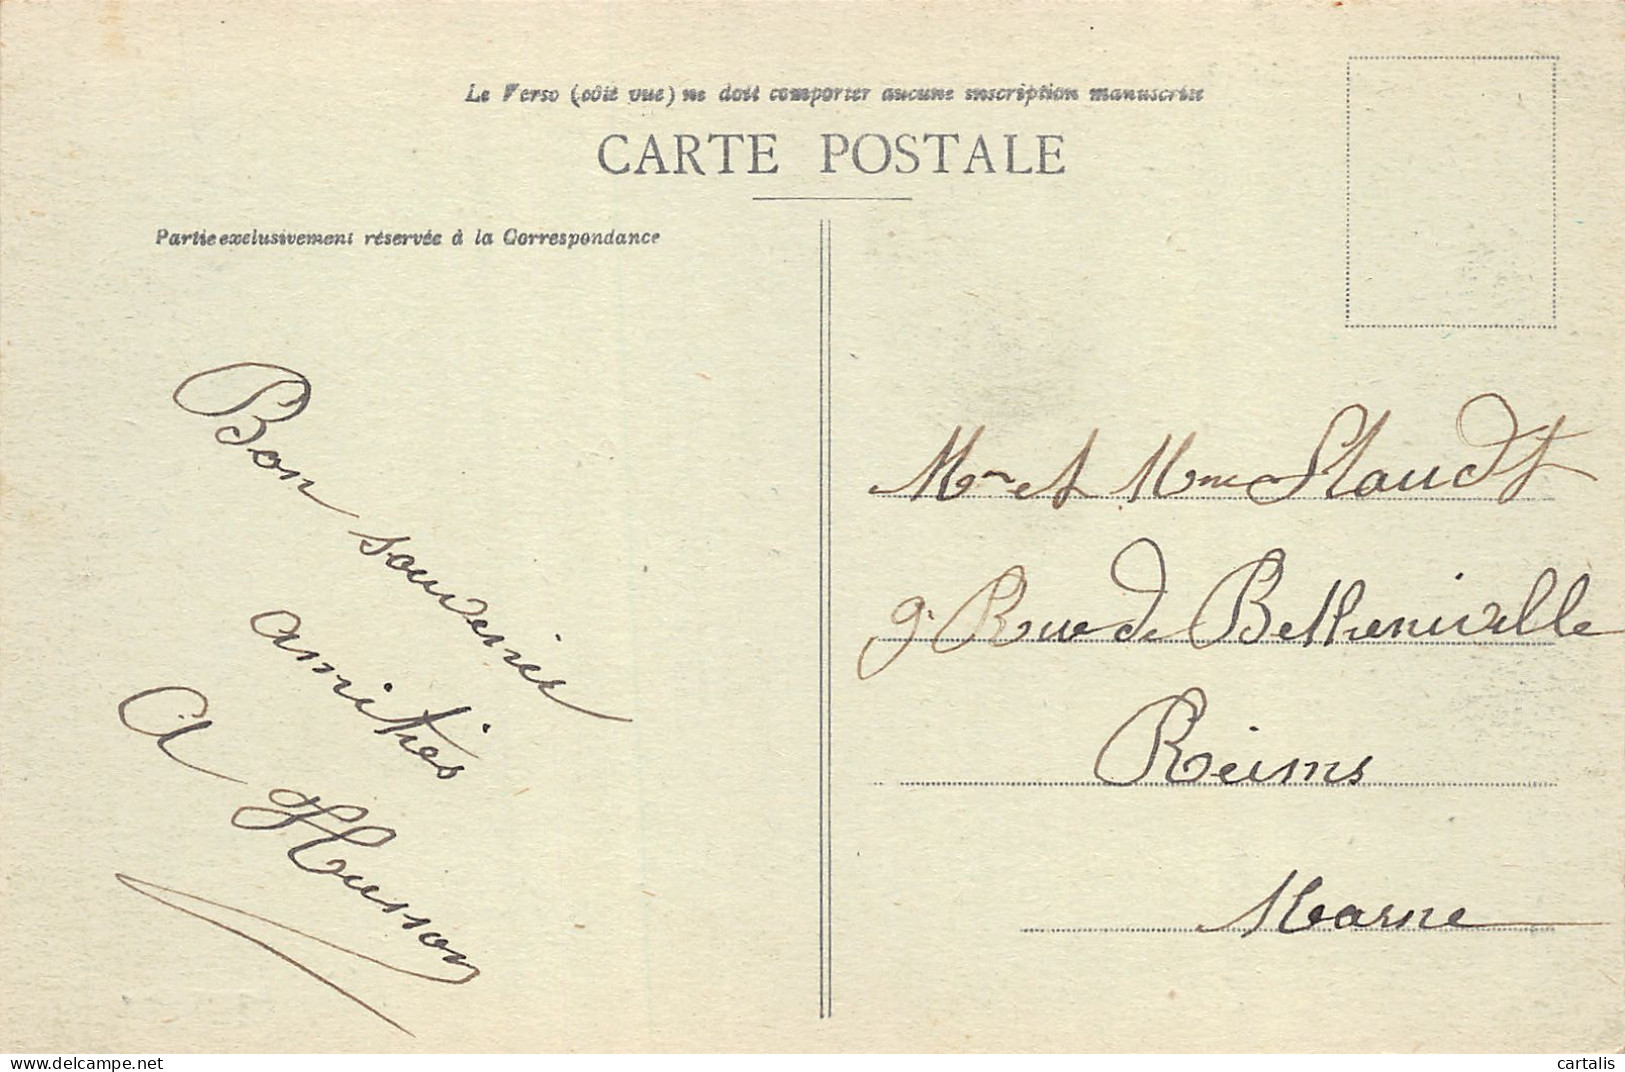 Le Verso (côté vue) ne doit comporter aucune inscription manuscrite
CARTE POSTALE
Partie exclusivement réservée à la Correspondance
Bon souvenir
amitiés
A Husson
Mr et Mme Staudt
9 Rue de Betheniville
Reims
Marne
delcampe.net
cartalis